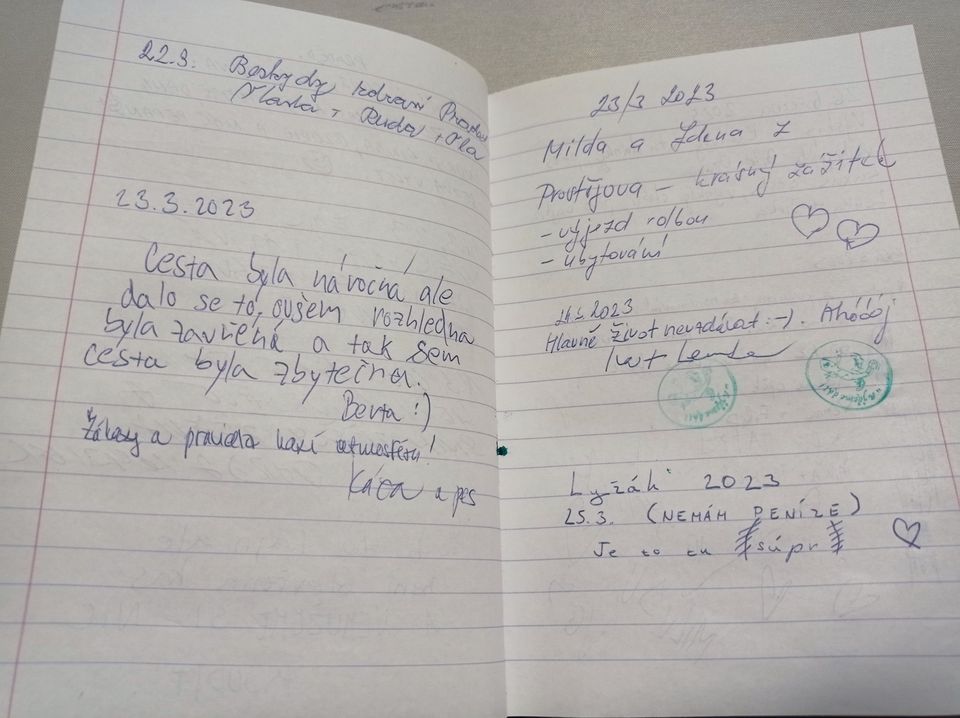 22.3. Beskydy zdraví
Vlasta + Ruda +
23.3.2023
Cesta byla náročná ale
dalo se to, ovšem rozhledna
byla zavřená a tak sem
cesta byla zbytečná.
Berta :)
Zákazy a pravidla kazí atmosféru!
Káča a pes
23/3 2023
Milda a Zdena z
Prostějova - krásný zážitek
- výjezd rolbou
- ubytování
2023
Hlavně život nevzdávat :-). Ahóój
Lyžák 2023
25.3. (NEMÁM PENÍZE)
Je to tu súpr